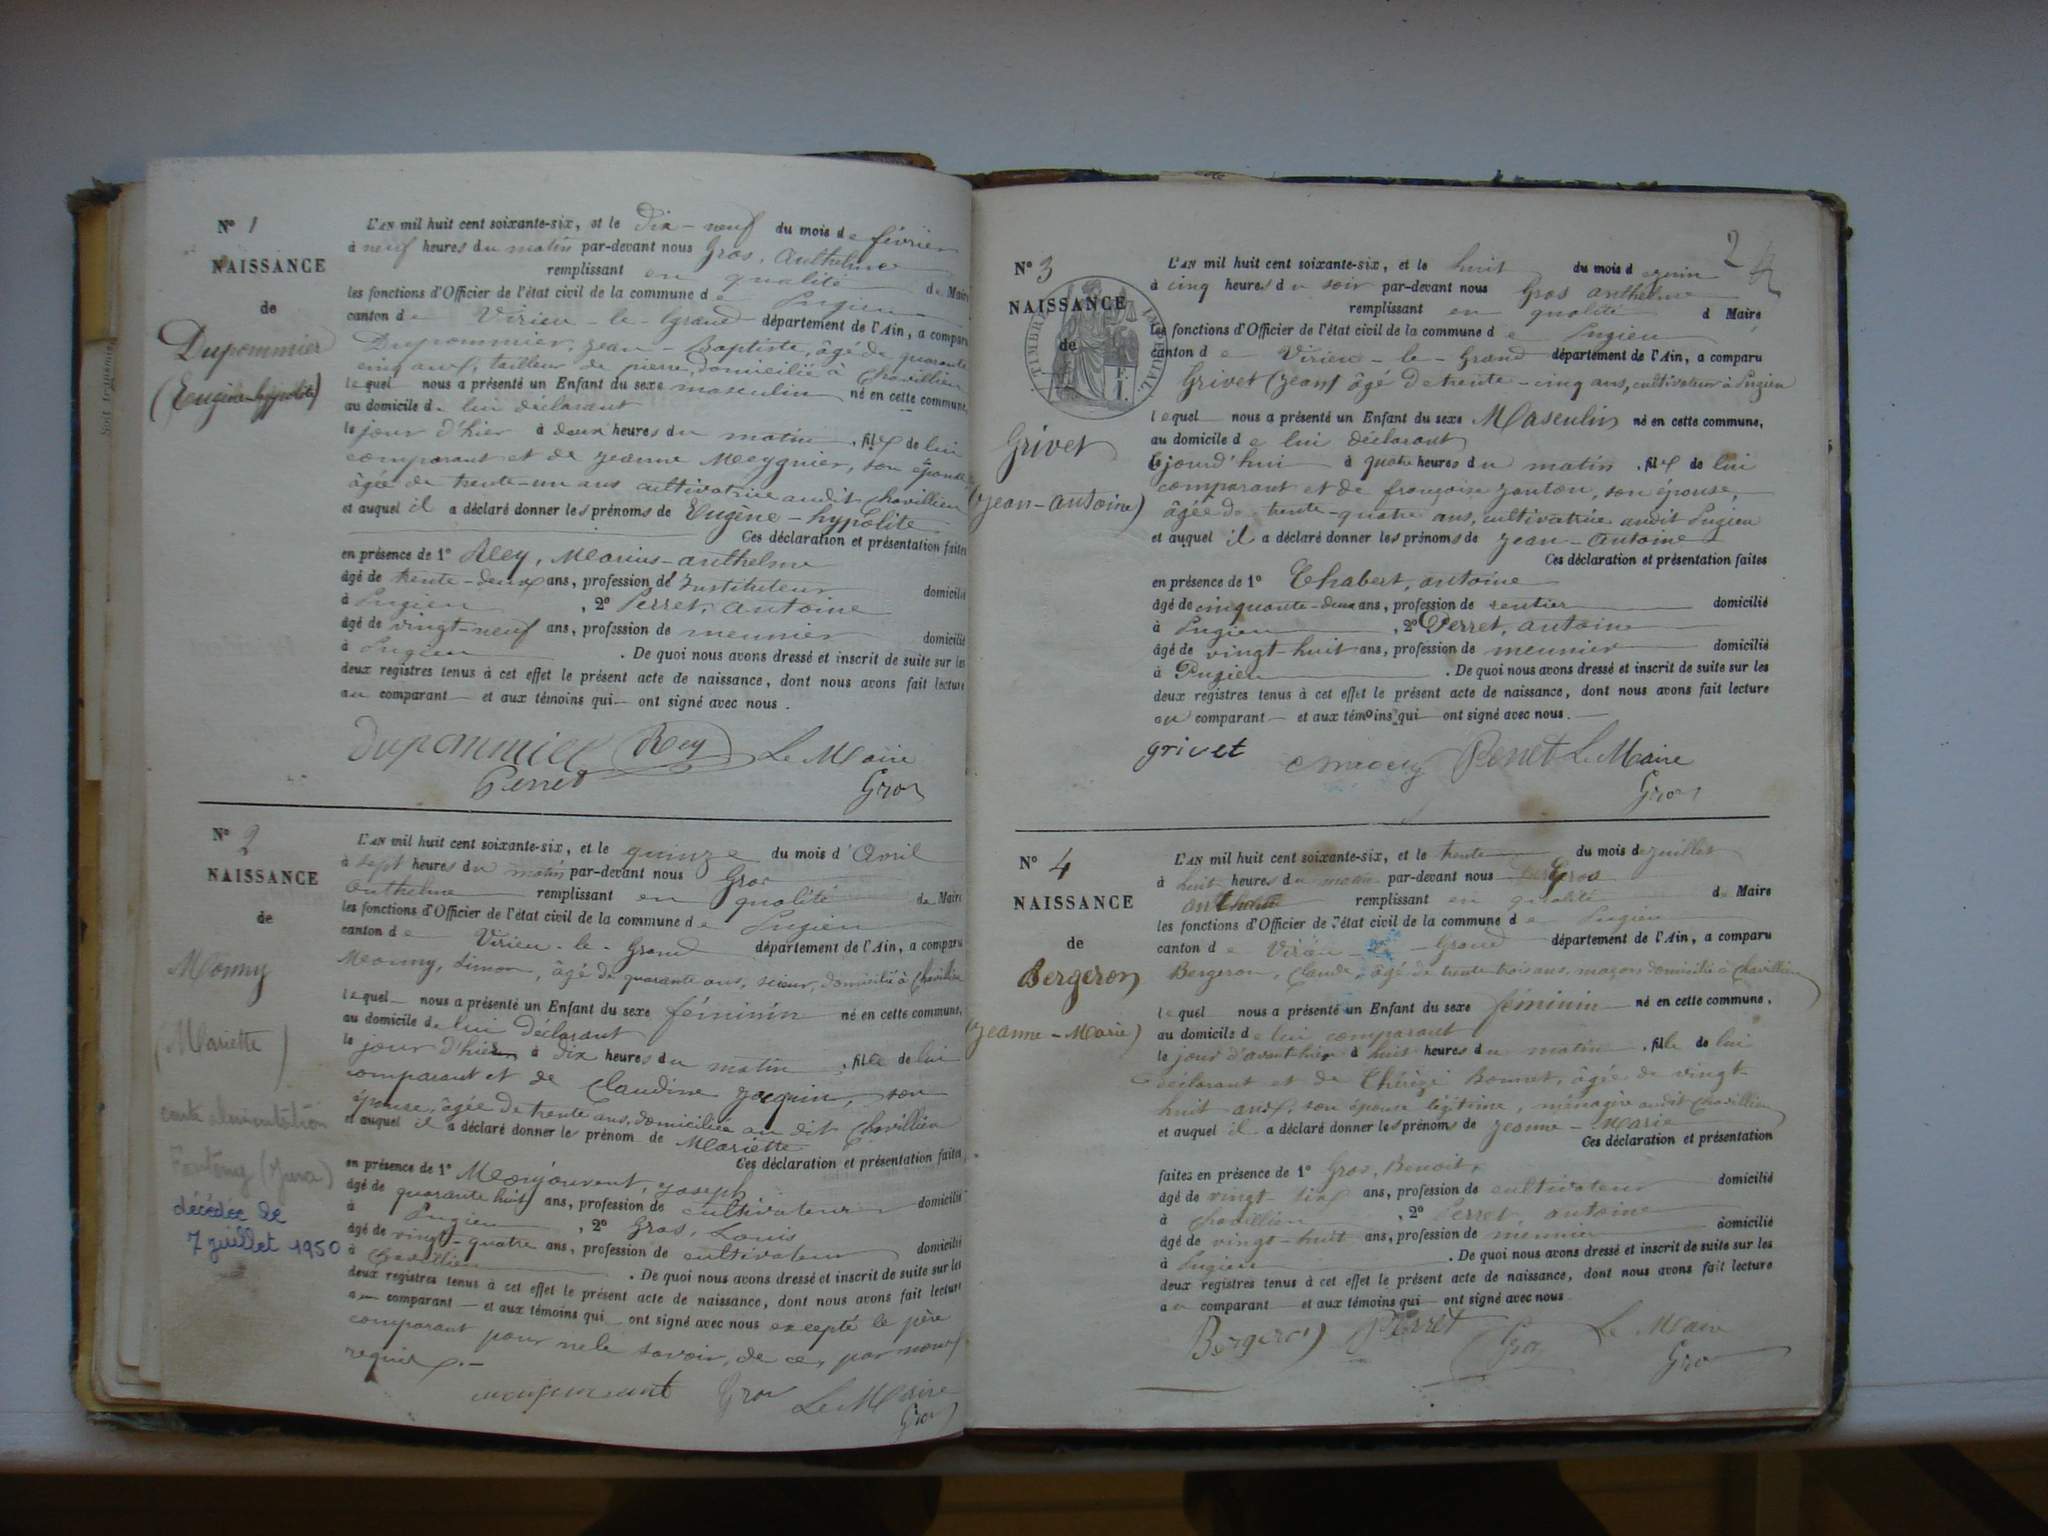 N° 1
NAISSANCE
de
Dupommier
(Eugène-hypolite)
L'AN mil huit cent soixante-six, et le dix-neuf du mois de février
à neuf heures du matin par-devant nous Gros, Anthelme
remplissant en qualité de Maire
les fonctions d'Officier de l'état civil de la commune de Pugieu
canton de Virieu-le-Grand département de l'Ain, a comparu
Dupommier, Jean-Baptiste, âgé de quarante
cinq ans, tailleur de pierre, domicilié à Chavillieu
lequel nous a présenté un Enfant du sexe masculin né en cette commune,
au domicile de lui déclarant
le jour d'hier à deux heures du matin, fils de lui
comparant et de Jeanne Meygnier, son épouse
âgée de trente-un ans cultivatrice audit Chavillieu
et auquel il a déclaré donner les prénoms de Eugène-hypolite
Ces déclaration et présentation faites
en présence de 1° Rey, Marius-anthelme
âgé de trente-deux ans, profession d'Instituteur domicilié
à Pugieu, 2° Perret, antoine
âgé de vingt-neuf ans, profession de meunier domicilié
à Pugieu. De quoi nous avons dressé et inscrit de suite sur les
deux registres tenus à cet effet le présent acte de naissance, dont nous avons fait lecture
au comparant et aux témoins qui ont signé avec nous.
Dupommier Rey Le Maire
Perret Gros
N° 2
NAISSANCE
de
Monny
(Mariette)
carte alimentation
(Jura)
décédée le
7 juillet 1950
L'AN mil huit cent soixante-six, et le quinze du mois d'Avril
à sept heures du matin par-devant nous Gros
anthelme remplissant en qualité de Maire
les fonctions d'Officier de l'état civil de la commune de Pugieu
canton de Virieu-le-Grand département de l'Ain, a comparu
Monny, Simon, âgé de quarante ans, scieur, domicilié à Chavillieu
lequel nous a présenté un Enfant du sexe féminin né en cette commune,
au domicile de lui déclarant
le jour d'hier à dix heures du matin, fille de lui
comparant et de Claudine Jacquin, son
épouse, âgée de trente ans, domiciliée au dit Chavillieu
et auquel il a déclaré donner le prénom de Mariette
Ces déclaration et présentation faites
en présence de 1° Monjouvent, Joseph
âgé de quarante huit ans, profession de cultivateur domicilié
à Pugieu, 2° Gros, Louis
âgé de vingt-quatre ans, profession de cultivateur domicilié
à Chavillieu. De quoi nous avons dressé et inscrit de suite sur les
deux registres tenus à cet effet le présent acte de naissance, dont nous avons fait lecture
au comparant et aux témoins qui ont signé avec nous excepté le père
comparant pour ne le savoir, de ce, par nous
requis.
monjouvent Gros Le Maire
Gros
2
N° 3
NAISSANCE
de
TIMBRE IMPÉRIAL
Grivet
(Jean-antoine)
L'AN mil huit cent soixante-six, et le huit du mois de juin
à cinq heures du soir par-devant nous Gros anthelme
remplissant en qualité d Maire
les fonctions d'Officier de l'état civil de la commune de Pugieu
canton de Virieu-le-Grand département de l'Ain, a comparu
Grivet (Jean) âgé de trente-cinq ans, cultivateur à Pugieu
lequel nous a présenté un Enfant du sexe Masculin né en cette commune,
au domicile de lui déclarant
jourd'hui à quatre heures du matin, fils de lui
comparant et de françoise Janton, son épouse,
âgée de trente-quatre ans, cultivatrice audit Pugieu
et auquel il a déclaré donner les prénoms de Jean-Antoine
Ces déclaration et présentation faites
en présence de 1° Chabert, antoine
âgé de cinquante-deux ans, profession de rentier domicilié
à Pugieu, 2° Perret, antoine
âgé de vingt-huit ans, profession de meunier domicilié
à Pugieu. De quoi nous avons dressé et inscrit de suite sur les
deux registres tenus à cet effet le présent acte de naissance, dont nous avons fait lecture
au comparant et aux témoins qui ont signé avec nous.
grivet Perret Le Maire
Gros
N° 4
NAISSANCE
de
Bergeron
(Jeanne-Marie)
L'AN mil huit cent soixante-six, et le trente du mois de juillet
à huit heures du matin par-devant nous Gros
anthelme remplissant en qualité de Maire
les fonctions d'Officier de l'état civil de la commune de Pugieu
canton de Virieu-le-Grand département de l'Ain, a comparu
Bergeron, Claude, âgé de trente trois ans, maçon domicilié à Chavillieu
lequel nous a présenté un Enfant du sexe féminin né en cette commune,
au domicile de lui comparant
le jour d'avant-hier à huit heures du matin, fille de lui
déclarant et de Thérèze Bonnet, âgée de vingt-
huit ans, son épouse légitime, ménagère audit Chavillieu
et auquel il a déclaré donner les prénoms de Jeanne-Marie
Ces déclaration et présentation
faites en présence de 1° Gros, Benoit,
âgé de vingt-six ans, profession de cultivateur domicilié
à Chavillieu, 2° Perret, antoine
âgé de vingt-huit ans, profession de meunier domicilié
à Pugieu. De quoi nous avons dressé et inscrit de suite sur les
deux registres tenus à cet effet le présent acte de naissance, dont nous avons fait lecture
au comparant et aux témoins qui ont signé avec nous
Bergeron Perret Gros Le Maire
Gros